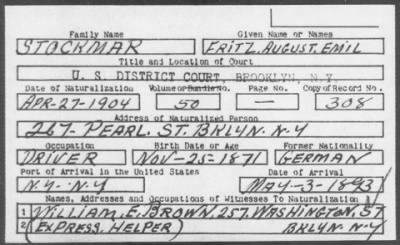 Family Name Given Name or Names
STOCKMAR FRITZ. AUGUST. EMIL
Title and Location of Court
U. S. DISTRICT COURT, BROOKLYN, N.Y.
Date of Naturalization Volume or Bundle No. Page No. Copy of Record No.
APR-27-1904 50 — 308
Address of Naturalized Person
267-PEARL. ST. BKLYN. N-Y
Occupation Birth Date or Age Former Nationality
DRIVER NOV-25-1871 GERMAN
Port of Arrival in the United States Date of Arrival
N.Y. N.Y MAY-3-1893
Names, Addresses and Occupations of Witnesses To Naturalization
1 WILLIAM. E. BROWN. 257. WASHINGTON. ST
2 (EXPRESS. HELPER) BKLYN-N-Y